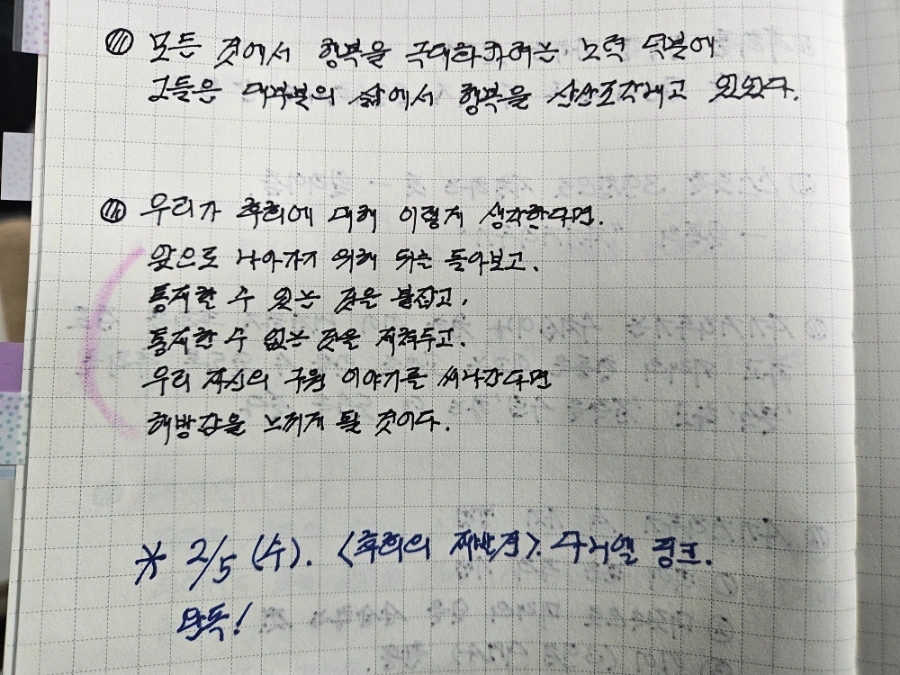 ⑪ 모든 것에서 행복을 극대화하려는 노력 덕분에
그들은 대부분의 삶에서 행복을 산산조각내고 있었다.
⑫ 우리가 후회에 대해 이렇게 생각한다면.
앞으로 나아가기 위해 뒤는 돌아보고.
통제할 수 있는 것을 붙잡고.
통제할 수 없는 것을 제쳐두고.
우리 자신의 구원 이야기를 써나간다면
해방감을 느끼게 될 것이다.
※ 2/5 (수). <후회의 재발견>. 다니엘 핑크.
완독!